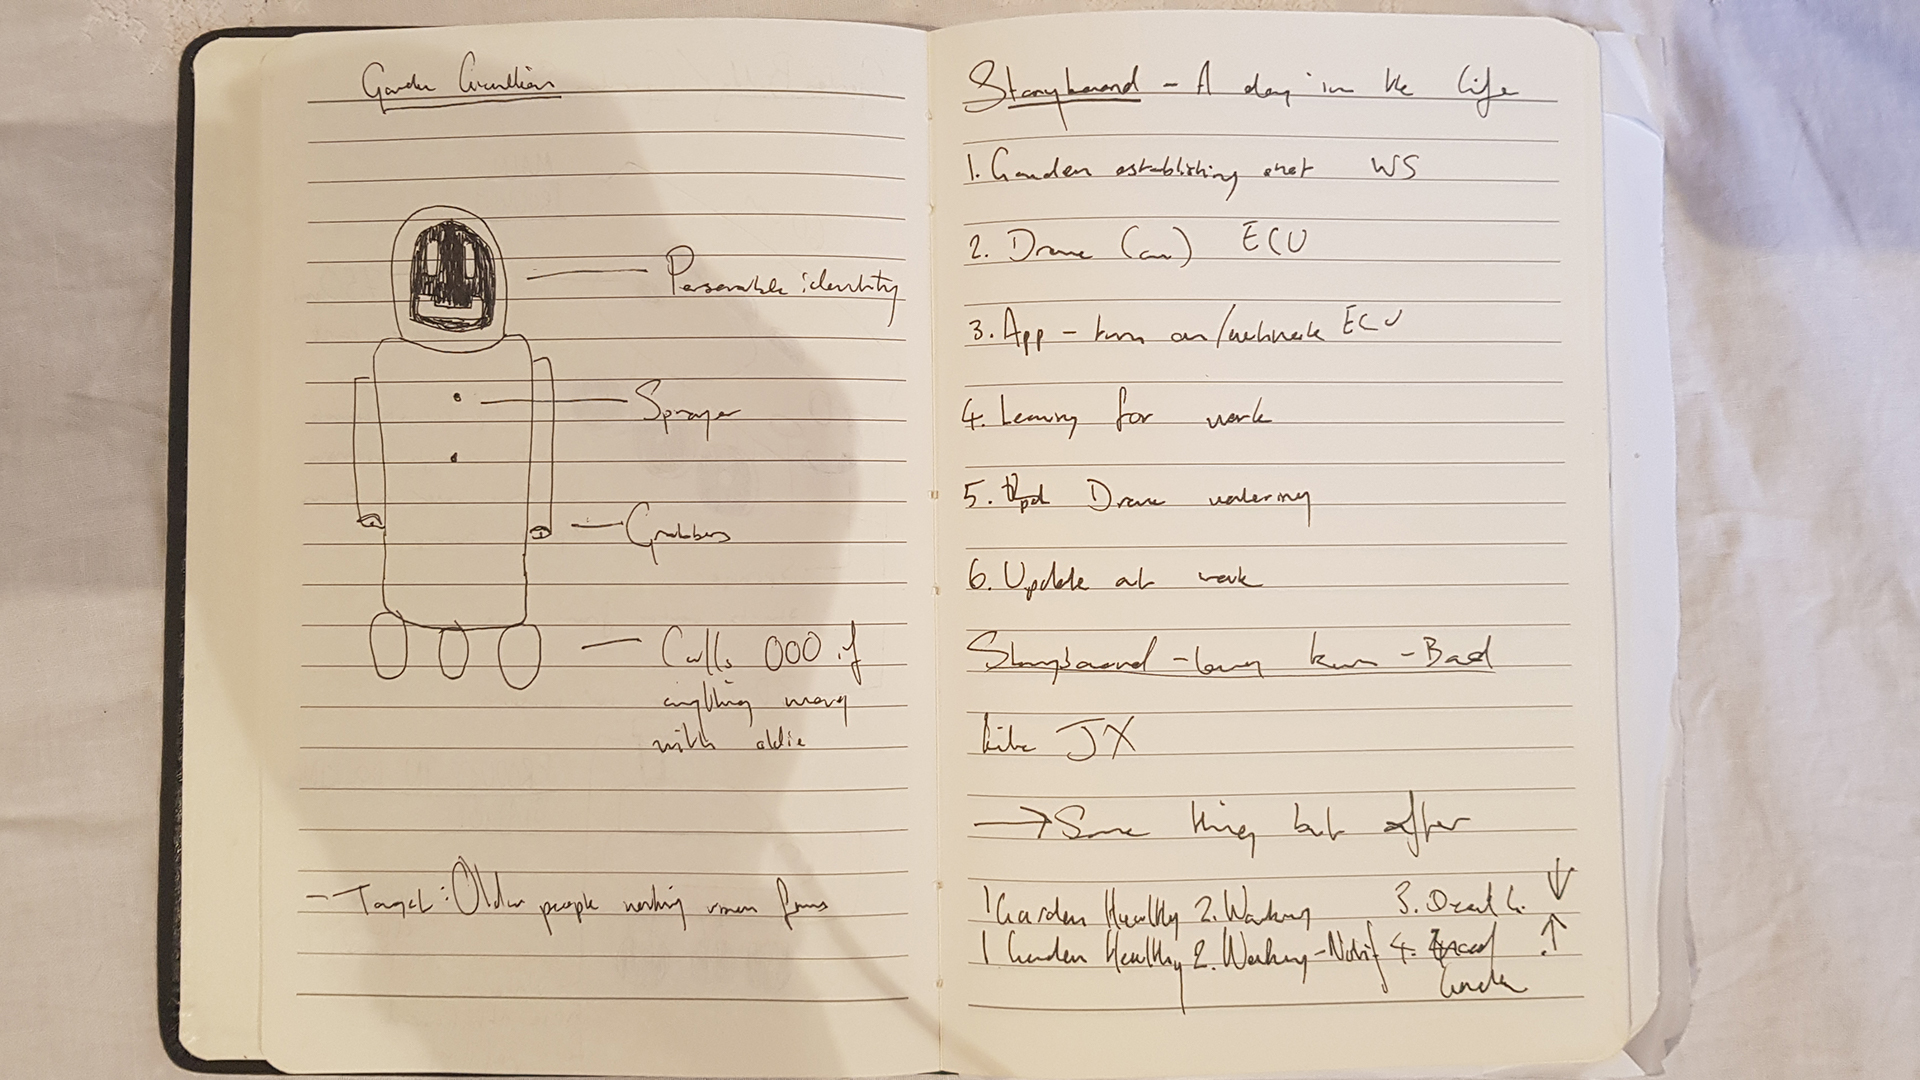 Garden Guardian
Personable identity
Sprayer
Grabbers
Calls 000 if
anything wrong
with oldie
- Target: Older people working
Storyboard - A day in the life
1. Garden establishing shot WS
2. Drone ECU
3. App - turn on/activate ECU
4. Leaving for work
5. Drone watering
6. Update at work
Storyboard - long term - Bad
like JX
→ Same thing but after
1 Garden Healthy 2. Working 3. Dead G. ↓
1 Garden Healthy 2. Working - Notif 4. Good ↑
Garden